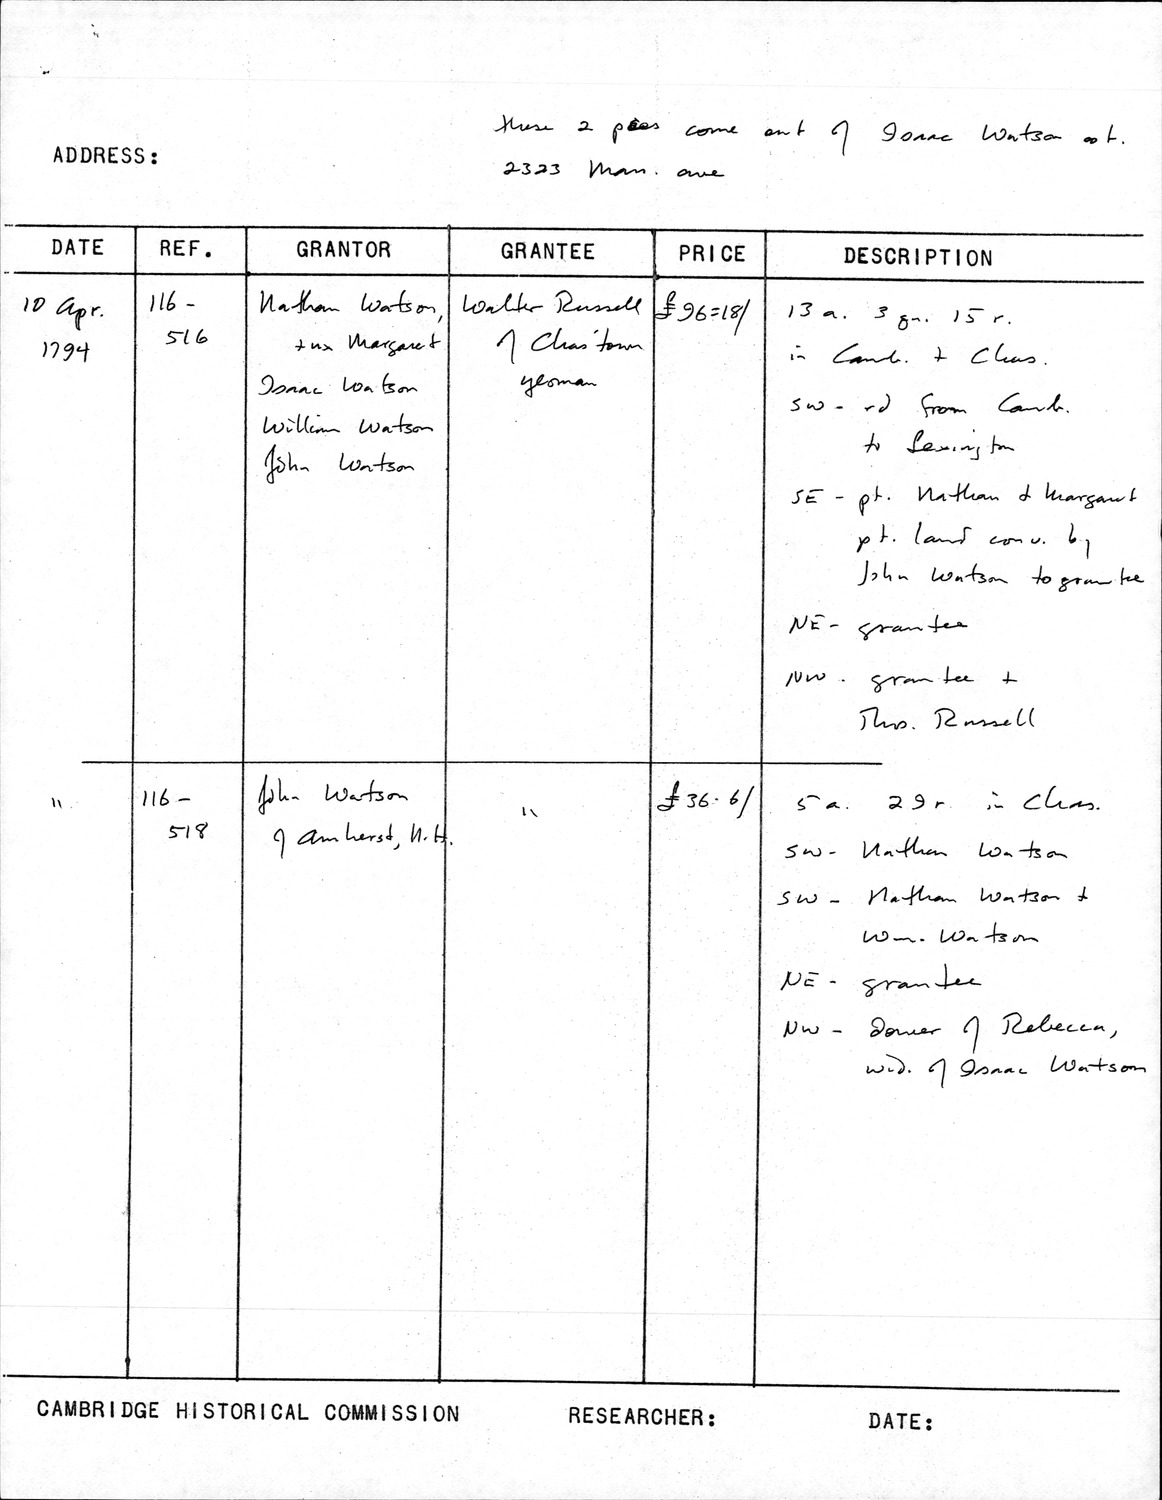 these 2 pces come out of Isaac Watson est.
ADDRESS:
2323 Mass. ave
DATE REF. GRANTOR GRANTEE PRICE DESCRIPTION
10 Apr. 1794
116-516
Nathan Watson,
+ ux Margaret
Isaac Watson
William Watson
John Watson
Walter Russell
of Chas'town
yeoman
£96=18/
13 a. 3 qu. 15 r.
in Camb. + Chas.
SW - rd from Camb.
to Lexington
SE - pt. Nathan & Margaret
pt. land conv. by
John Watson to grantee
NE - grantee
NW - grantee +
Thos. Russell
"
116-518
John Watson
of Amherst, N.H.
"
£36.6/
5 a. 29 r in Chas.
SW- Nathan Watson
SW - Nathan Watson +
Wm. Watson
NE - grantee
NW - Dower of Rebecca,
wid. of Isaac Watson
CAMBRIDGE HISTORICAL COMMISSION RESEARCHER: DATE: